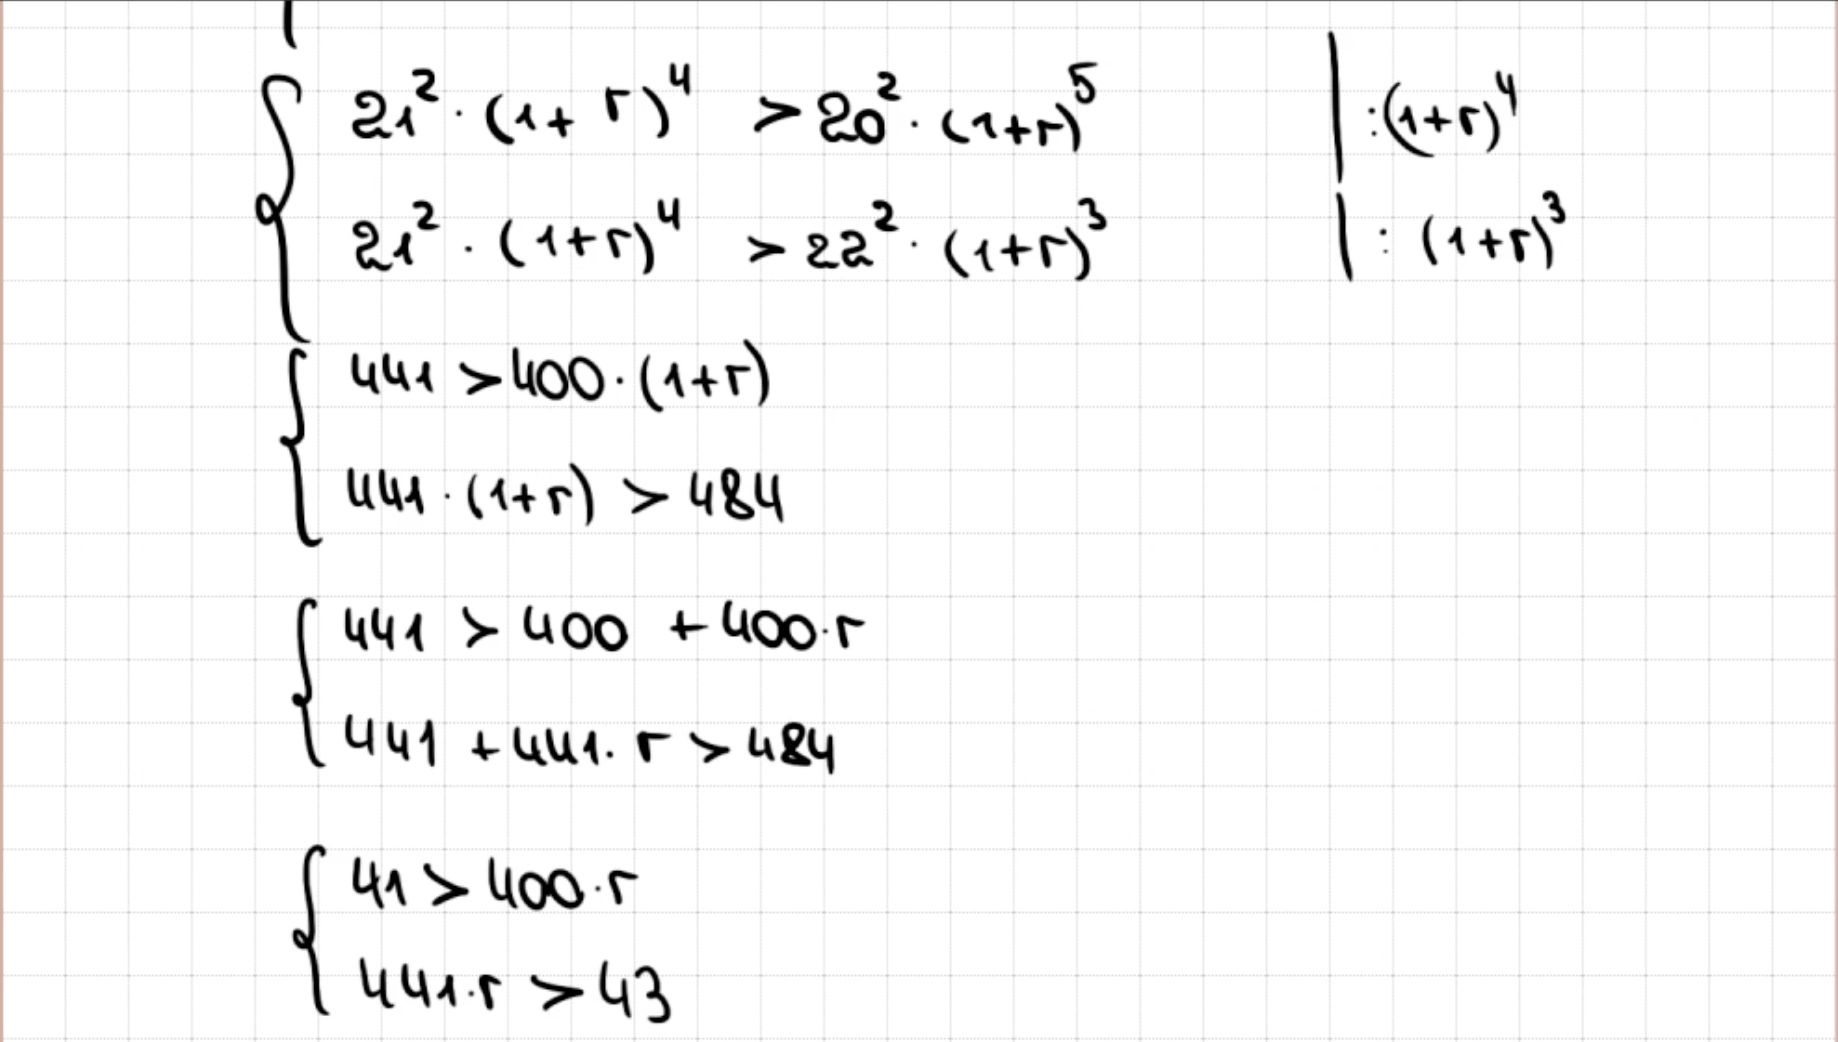 21² · (1+r)⁴ > 20² · (1+r)⁵ | :(1+r)⁴
21² · (1+r)⁴ > 22² · (1+r)³ | : (1+r)³
441 > 400 · (1+r)
441 · (1+r) > 484
441 > 400 + 400·r
441 + 441·r > 484
41 > 400·r
441·r > 43